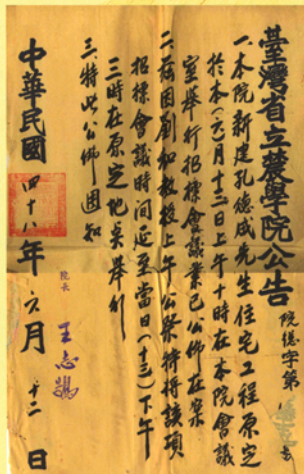 臺灣省立農學院公告
院總字第 號
一、本院新建孔德成先生住宅工程原定
於本(六)月十三日上午十時在本院會議
室舉行招標會議業已公佈在案
二、茲因劉和教授上午公祭特將該項
招標會議時间延至當日(十三)下午
三時在原定地点舉行
三、特此公佈週知
院長 王志鵠
中華民國四十八年六月十二日